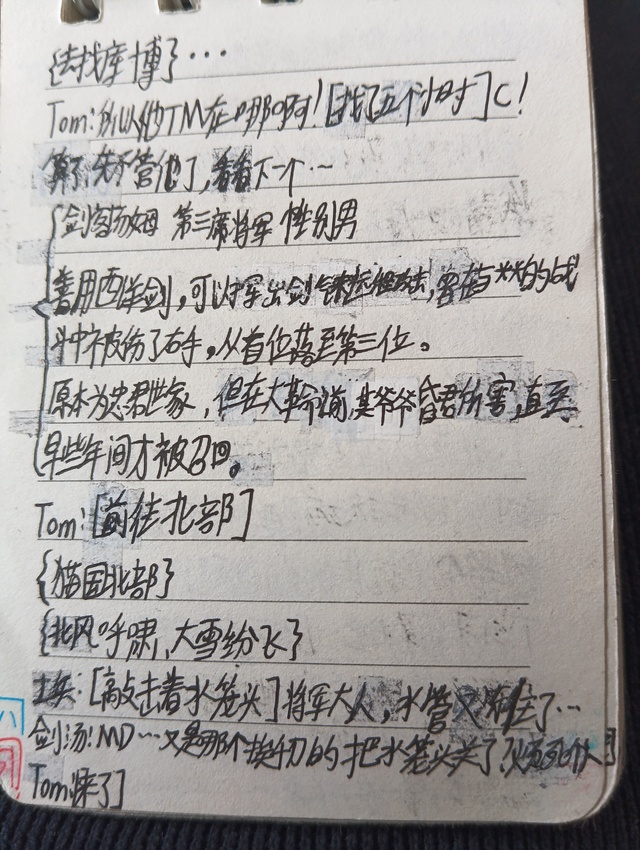 {去找库博}...
Tom:所以他TM在哪啊![找了五个小时]C!
算了,先不管他了,看看下一个…
剑客汤姆 第三席将军 性别男
善用西洋剑,可以挥出剑攻击,曾在与**的战
斗中被伤了右手,从首位落至第三位。
原本为忠君世家,但在大革命前,其爷爷昏君所害,直至
早些年间才被召回。
Tom:[前往北部]
{猫国北部}
{北风呼啸,大雪纷飞}
士兵:[敲击着水笼头]将军大人,水管又冻住了…
剑汤:MD…又是哪个挨千刀的把水笼头关了?
Tom:来了]